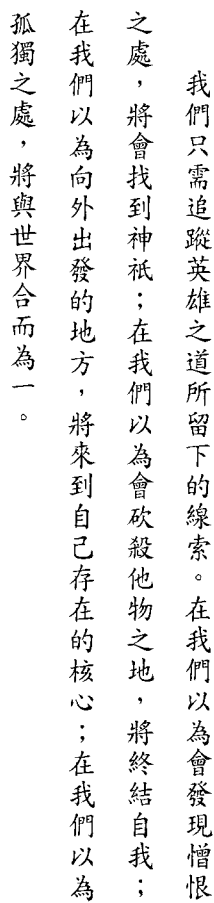 我們只需追蹤英雄之道所留下的線索。在我們以為會發現憎恨
之處，將會找到神祇；在我們以為會砍殺他物之地，將終結自我；
在我們以為向外出發的地方，將來到自己存在的核心；在我們以為
孤獨之處，將與世界合而為一。